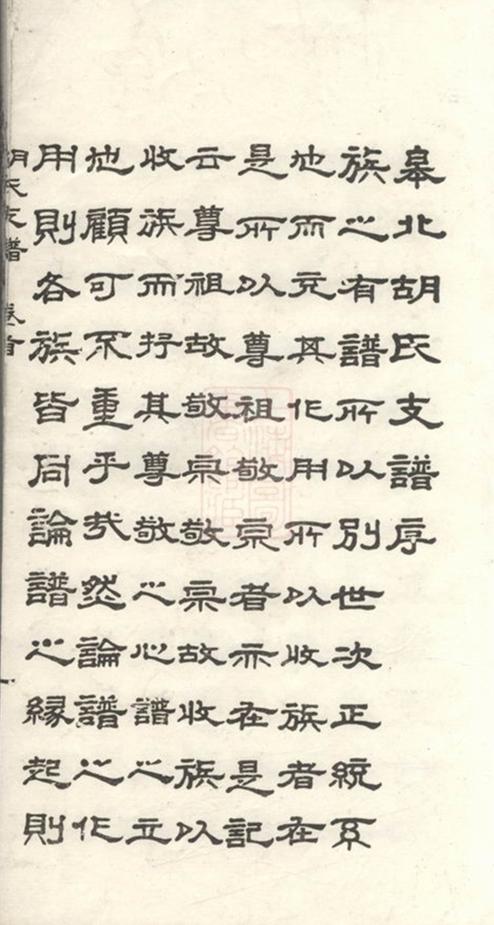 皋北胡氏支譜序
族之有譜所以別世次正統系
也而充其作用所以收族者在
是所以尊祖敬宗者亦在是記
云尊祖故敬宗敬宗故收族以
收族而抒其尊敬之心譜之立
也顧可不重乎哉然論譜之作
用則各族皆同論譜之緣起則
胡氏支譜 卷首